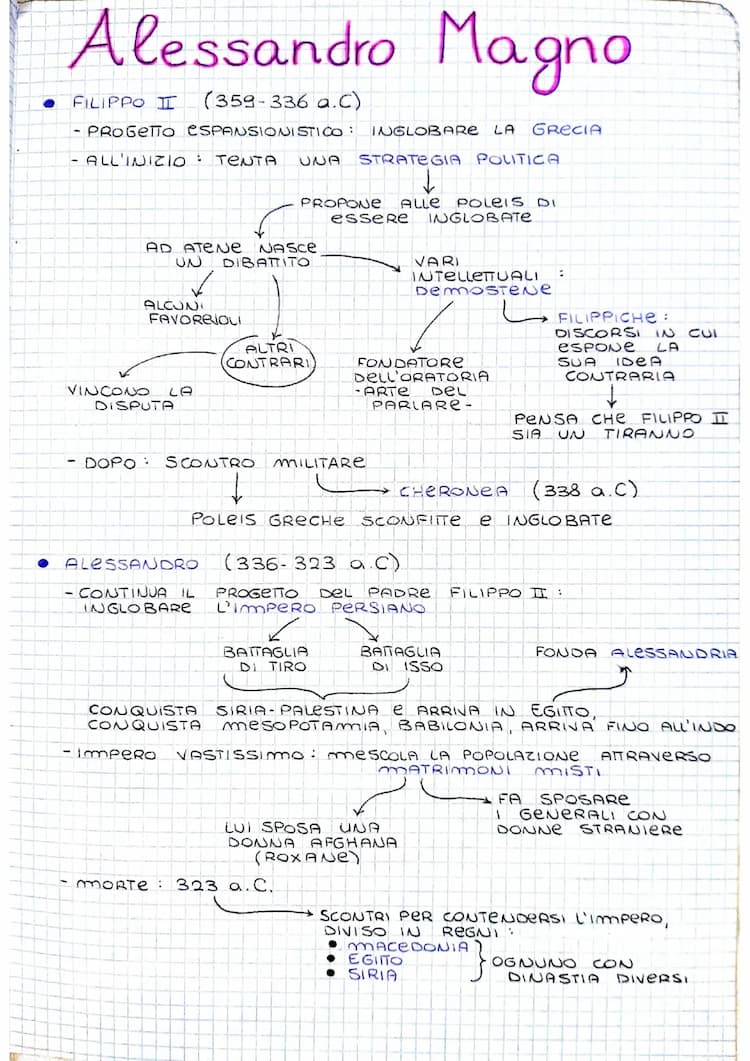 Alessandro Magno
• FILIPPO II (359-336 a.C)
- PROGETTO ESPANSIONISTICO: INGLOBARE LA GRECIA
- ALL'INIZIO: TENTA UNA STRATEGIA POLITICA
PROPONE ALLE POLEIS DI
ESSERE INGLOBATE
AD ATENE NASCE
UN DIBATTITO
VARI
INTELLETTUALI :
DEMOSTENE
ALCUNI
FAVOREVOLI
ALTRI
CONTRARI
VINCONO LA
DISPUTA
FONDATORE
DELL'ORATORIA
-ARTE DEL
PARLARE-
FILIPPICHE:
DISCORSI IN CUI
ESPONE LA
SUA IDEA
CONTRARIA
PENSA CHE FILIPPO II
SIA UN TIRANNO
- DOPO: SCONTRO MILITARE
CHERONEA (338 a.C)
POLEIS GRECHE SCONFITTE E INGLOBATE
• ALESSANDRO (336-323 a.C)
- CONTINUA IL PROGETTO DEL PADRE FILIPPO II:
INGLOBARE L'IMPERO PERSIANO
BATTAGLIA
DI TIRO
BATTAGLIA
DI ISSO
FONDA ALESSANDRIA
CONQUISTA SIRIA-PALESTINA E ARRIVA IN EGITTO,
CONQUISTA MESOPOTAMIA, BABILONIA, ARRIVA FINO ALL'INDO
- IMPERO VASTISSIMO: MESCOLA LA POPOLAZIONE ATTRAVERSO
MATRIMONI MISTI
LUI SPOSA UNA
DONNA AFGHANA
(ROXANE)
FA SPOSARE
I GENERALI CON
DONNE STRANIERE
- MORTE: 323 a.C.
SCONTRI PER CONTENDERSI L'IMPERO,
DIVISO IN REGNI:
• MACEDONIA
• EGITTO
• SIRIA
OGNUNO CON
DINASTIA DIVERSI